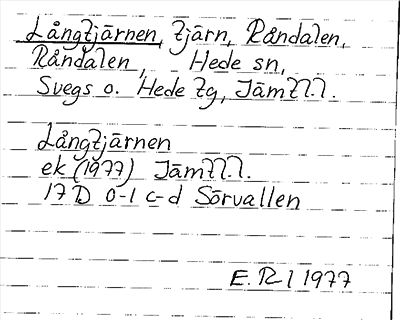 Långtjärnen, tjärn, Råndalen,
Råndalen, Hede sn,
Svegs o. Hede tg, Jämtl.l.
Långtjärnen
ek (1977) Jämtl.l.
17 D 0-1 c-d Sörvallen
E. R 1977